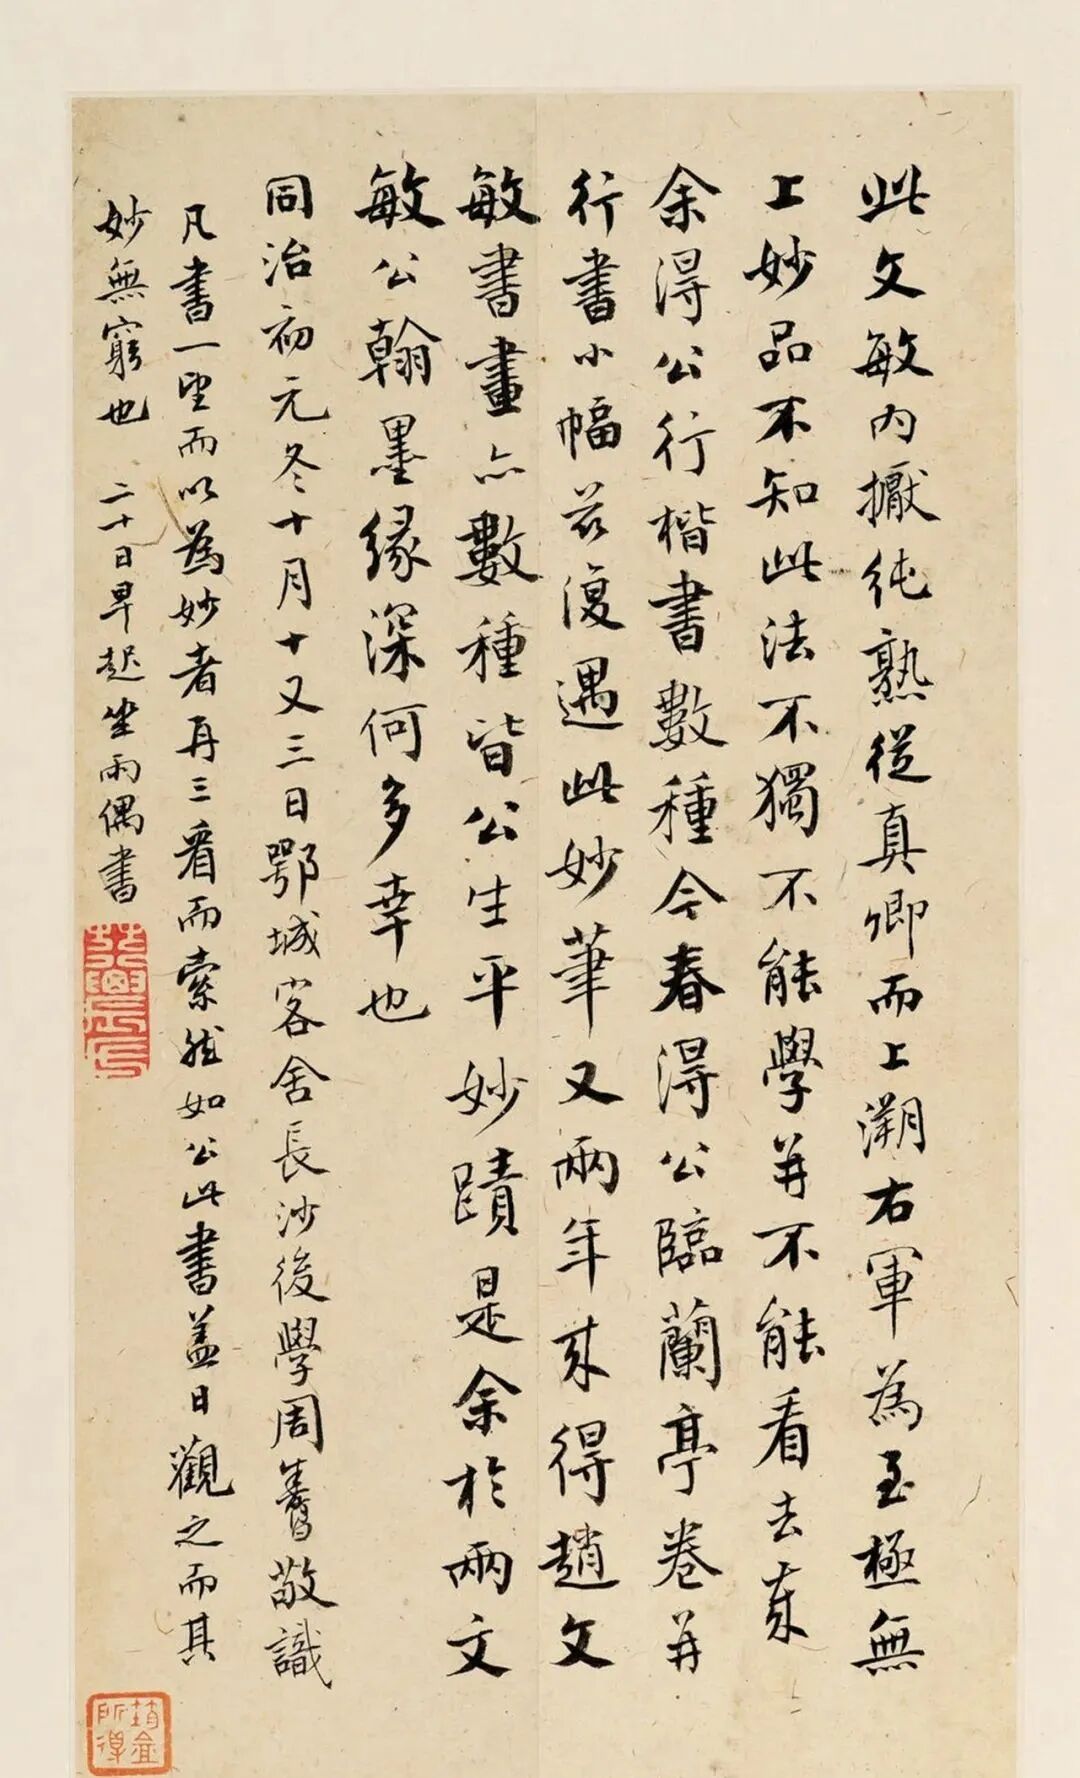 此文敏内擫純熟從真卿而上溯右軍為至極無
上妙品不知此法不獨不能學并不能看去年
余得公行楷書數種今春得公臨蘭亭卷并
行書小幅茲復遇此妙筆又兩年來得趙文
敏書畫亦數種皆公生平妙蹟是余於兩文
敏公翰墨緣深何多幸也
同治初元冬十月十又三日鄂城客舍長沙後學周壽敬識
凡書一望而以為妙者再三看而索然如公此書蓋日觀之而其
妙無窮也 二十日早起坐雨偶書